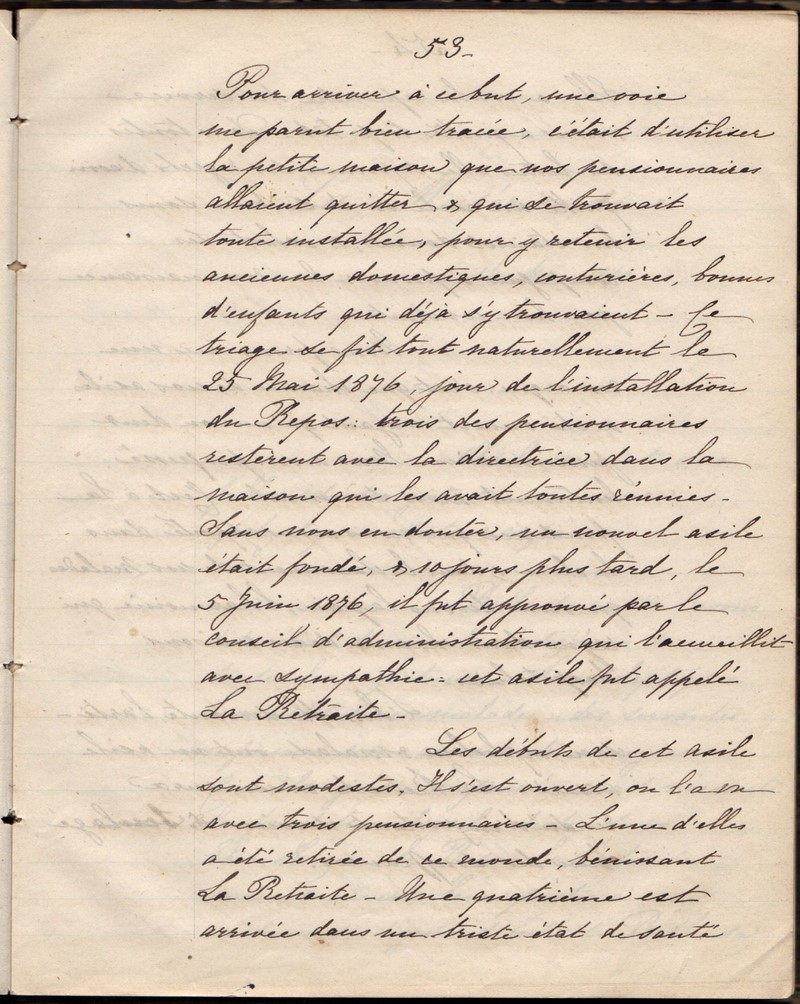 53-
Pour arriver à ce but, une voie
me parut bien tracée, c'était d'utiliser
la petite maison que nos pensionnaires
allaient quitter & qui se trouvait
toute installée, pour y retenir les
anciennes domestiques, couturières, bonnes
d'enfants qui déjà s'y trouvaient - Ce
triage se fit tout naturellement le
25 Mai 1876, jour de l'installation
du Repos: trois des pensionnaires
restèrent avec la directrice dans la
maison qui les avait toutes réunies -
Sans nous en douter, un nouvel asile
était fondé, & 10 jours plus tard, le
5 Juin 1876, il fut approuvé par le
conseil d'administration qui l'accueillit
avec sympathie: cet asile fut appelé
La Retraite -
Les débuts de cet asile
sont modestes. Il s'est ouvert, on l'a vu
avec trois pensionnaires - L'une d'elles
a été retirée de ce monde, bénissant
La Retraite - Une quatrième est
arrivée dans un triste état de santé